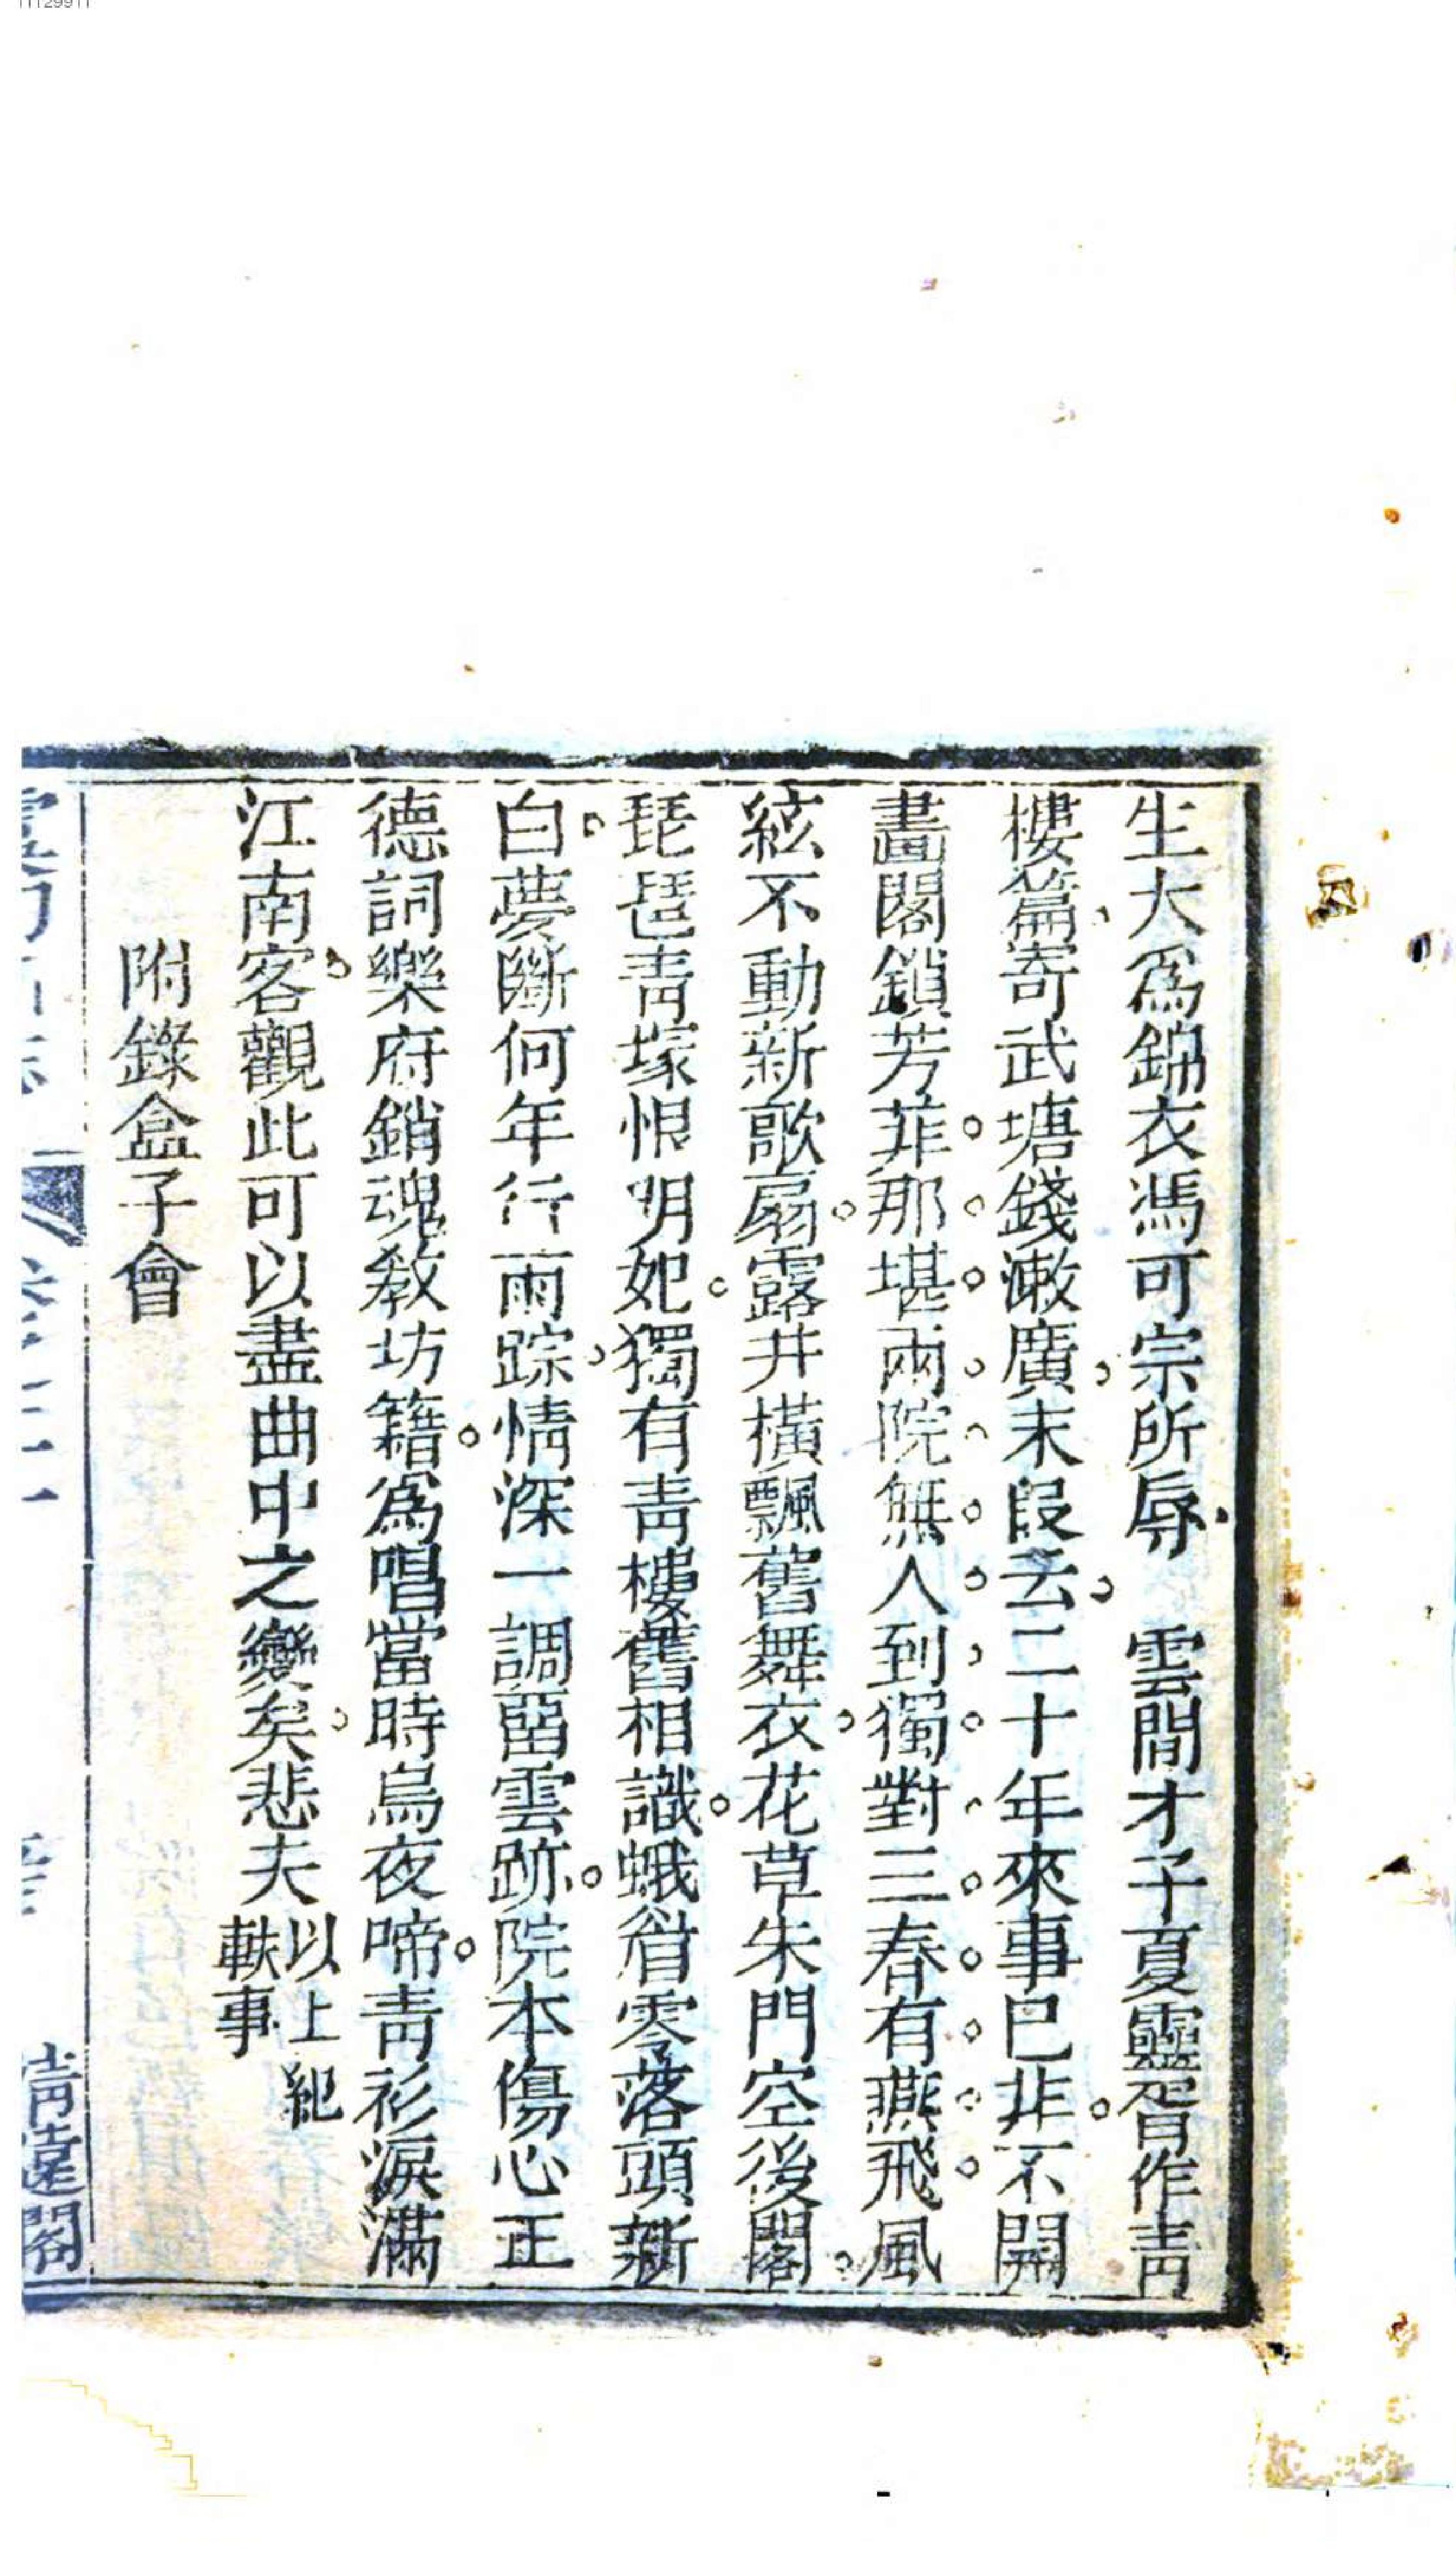 生大爲錦衣馮可宗所辱　雲間才子夏靈胥作靑
樓篇寄武塘錢漱廣末段云二十年來事已非不開
畫閣鎖芳菲那堪兩院無人到獨對三春有燕飛風
絃不動新歌扇露井橫飄舊舞衣花草朱門空後閣
琵琶靑塚恨明妃獨有靑樓舊相識蛾眉零落頭新
白夢斷何年行雨踪情深一調留雲跡院本傷心正
德詞樂府銷魂敎坊籍爲唱當時烏夜啼靑衫淚滿
江南客觀此可以盡曲中之變矣悲夫以上紀
軼事
附錄盒子會
情遠閣